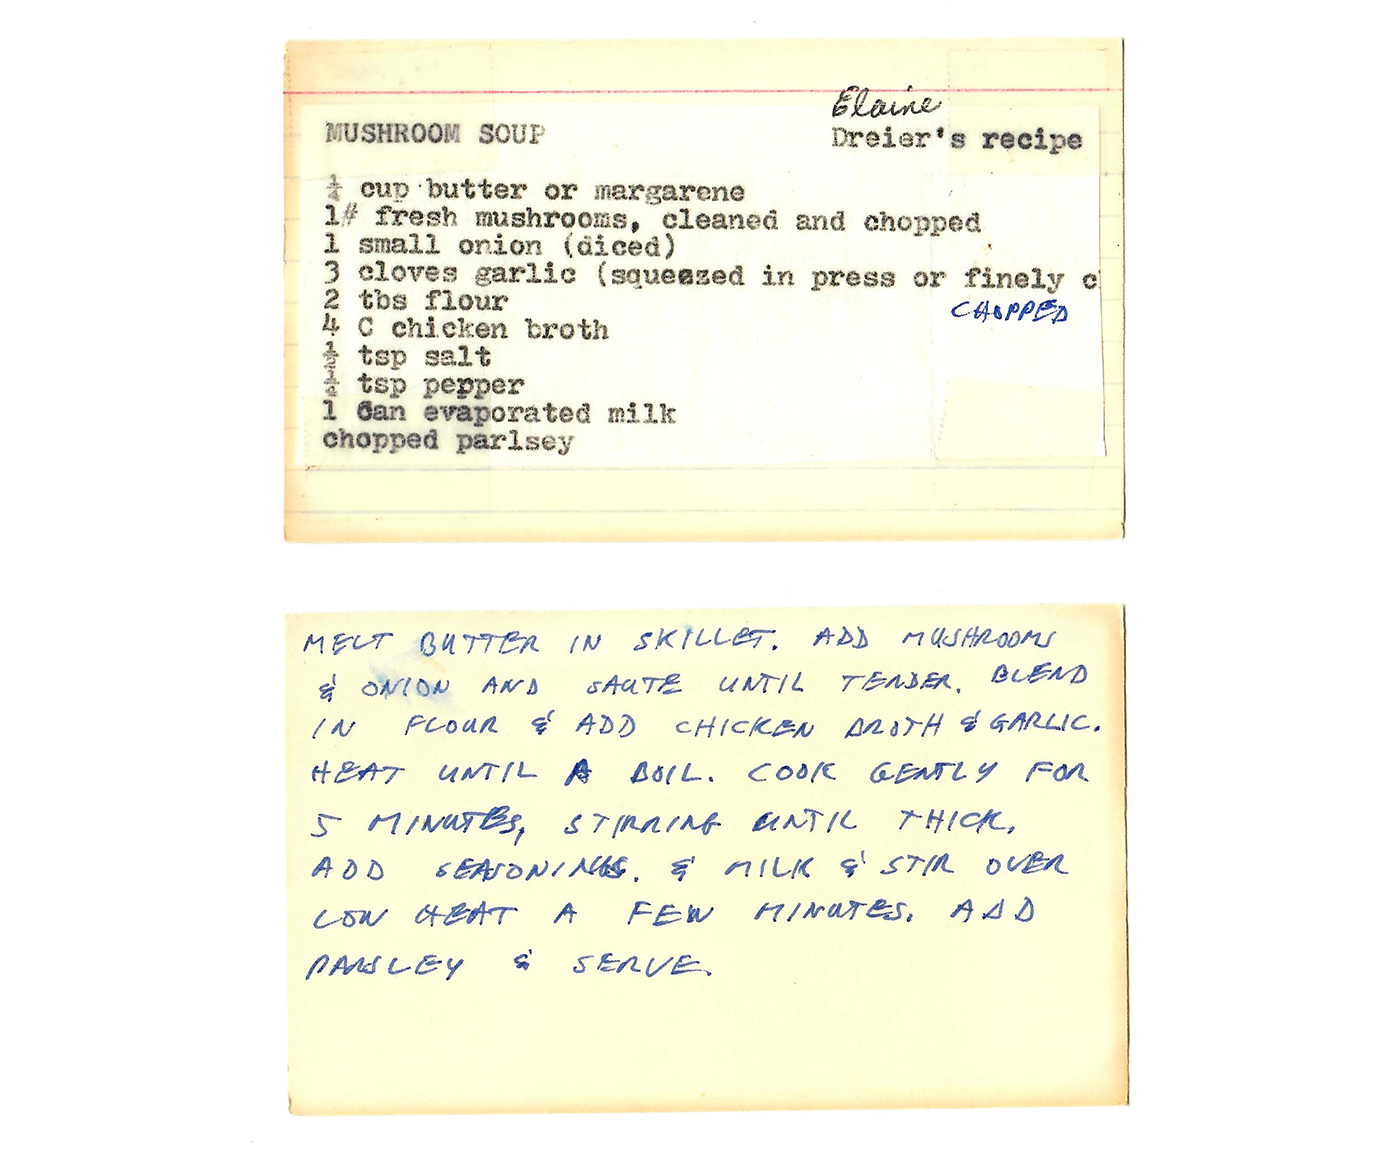 Elaine
MUSHROOM SOUP Dreier's recipe
¼ cup butter or margarene
1# fresh mushrooms, cleaned and chopped
1 small onion (diced)
3 cloves garlic (squeezed in press or finely c
2 tbs flour CHOPPED
4 C chicken broth
½ tsp salt
¼ tsp pepper
1 Can evaporated milk
chopped parlsey
MELT BUTTER IN SKILLET. ADD MUSHROOMS
& ONION AND SAUTE UNTIL TENDER. BLEND
IN FLOUR & ADD CHICKEN BROTH & GARLIC.
HEAT UNTIL A BOIL. COOK GENTLY FOR
5 MINUTES, STIRRING UNTIL THICK.
ADD SEASONINGS. & MILK & STIR OVER
LOW HEAT A FEW MINUTES. ADD
PARSLEY & SERVE.